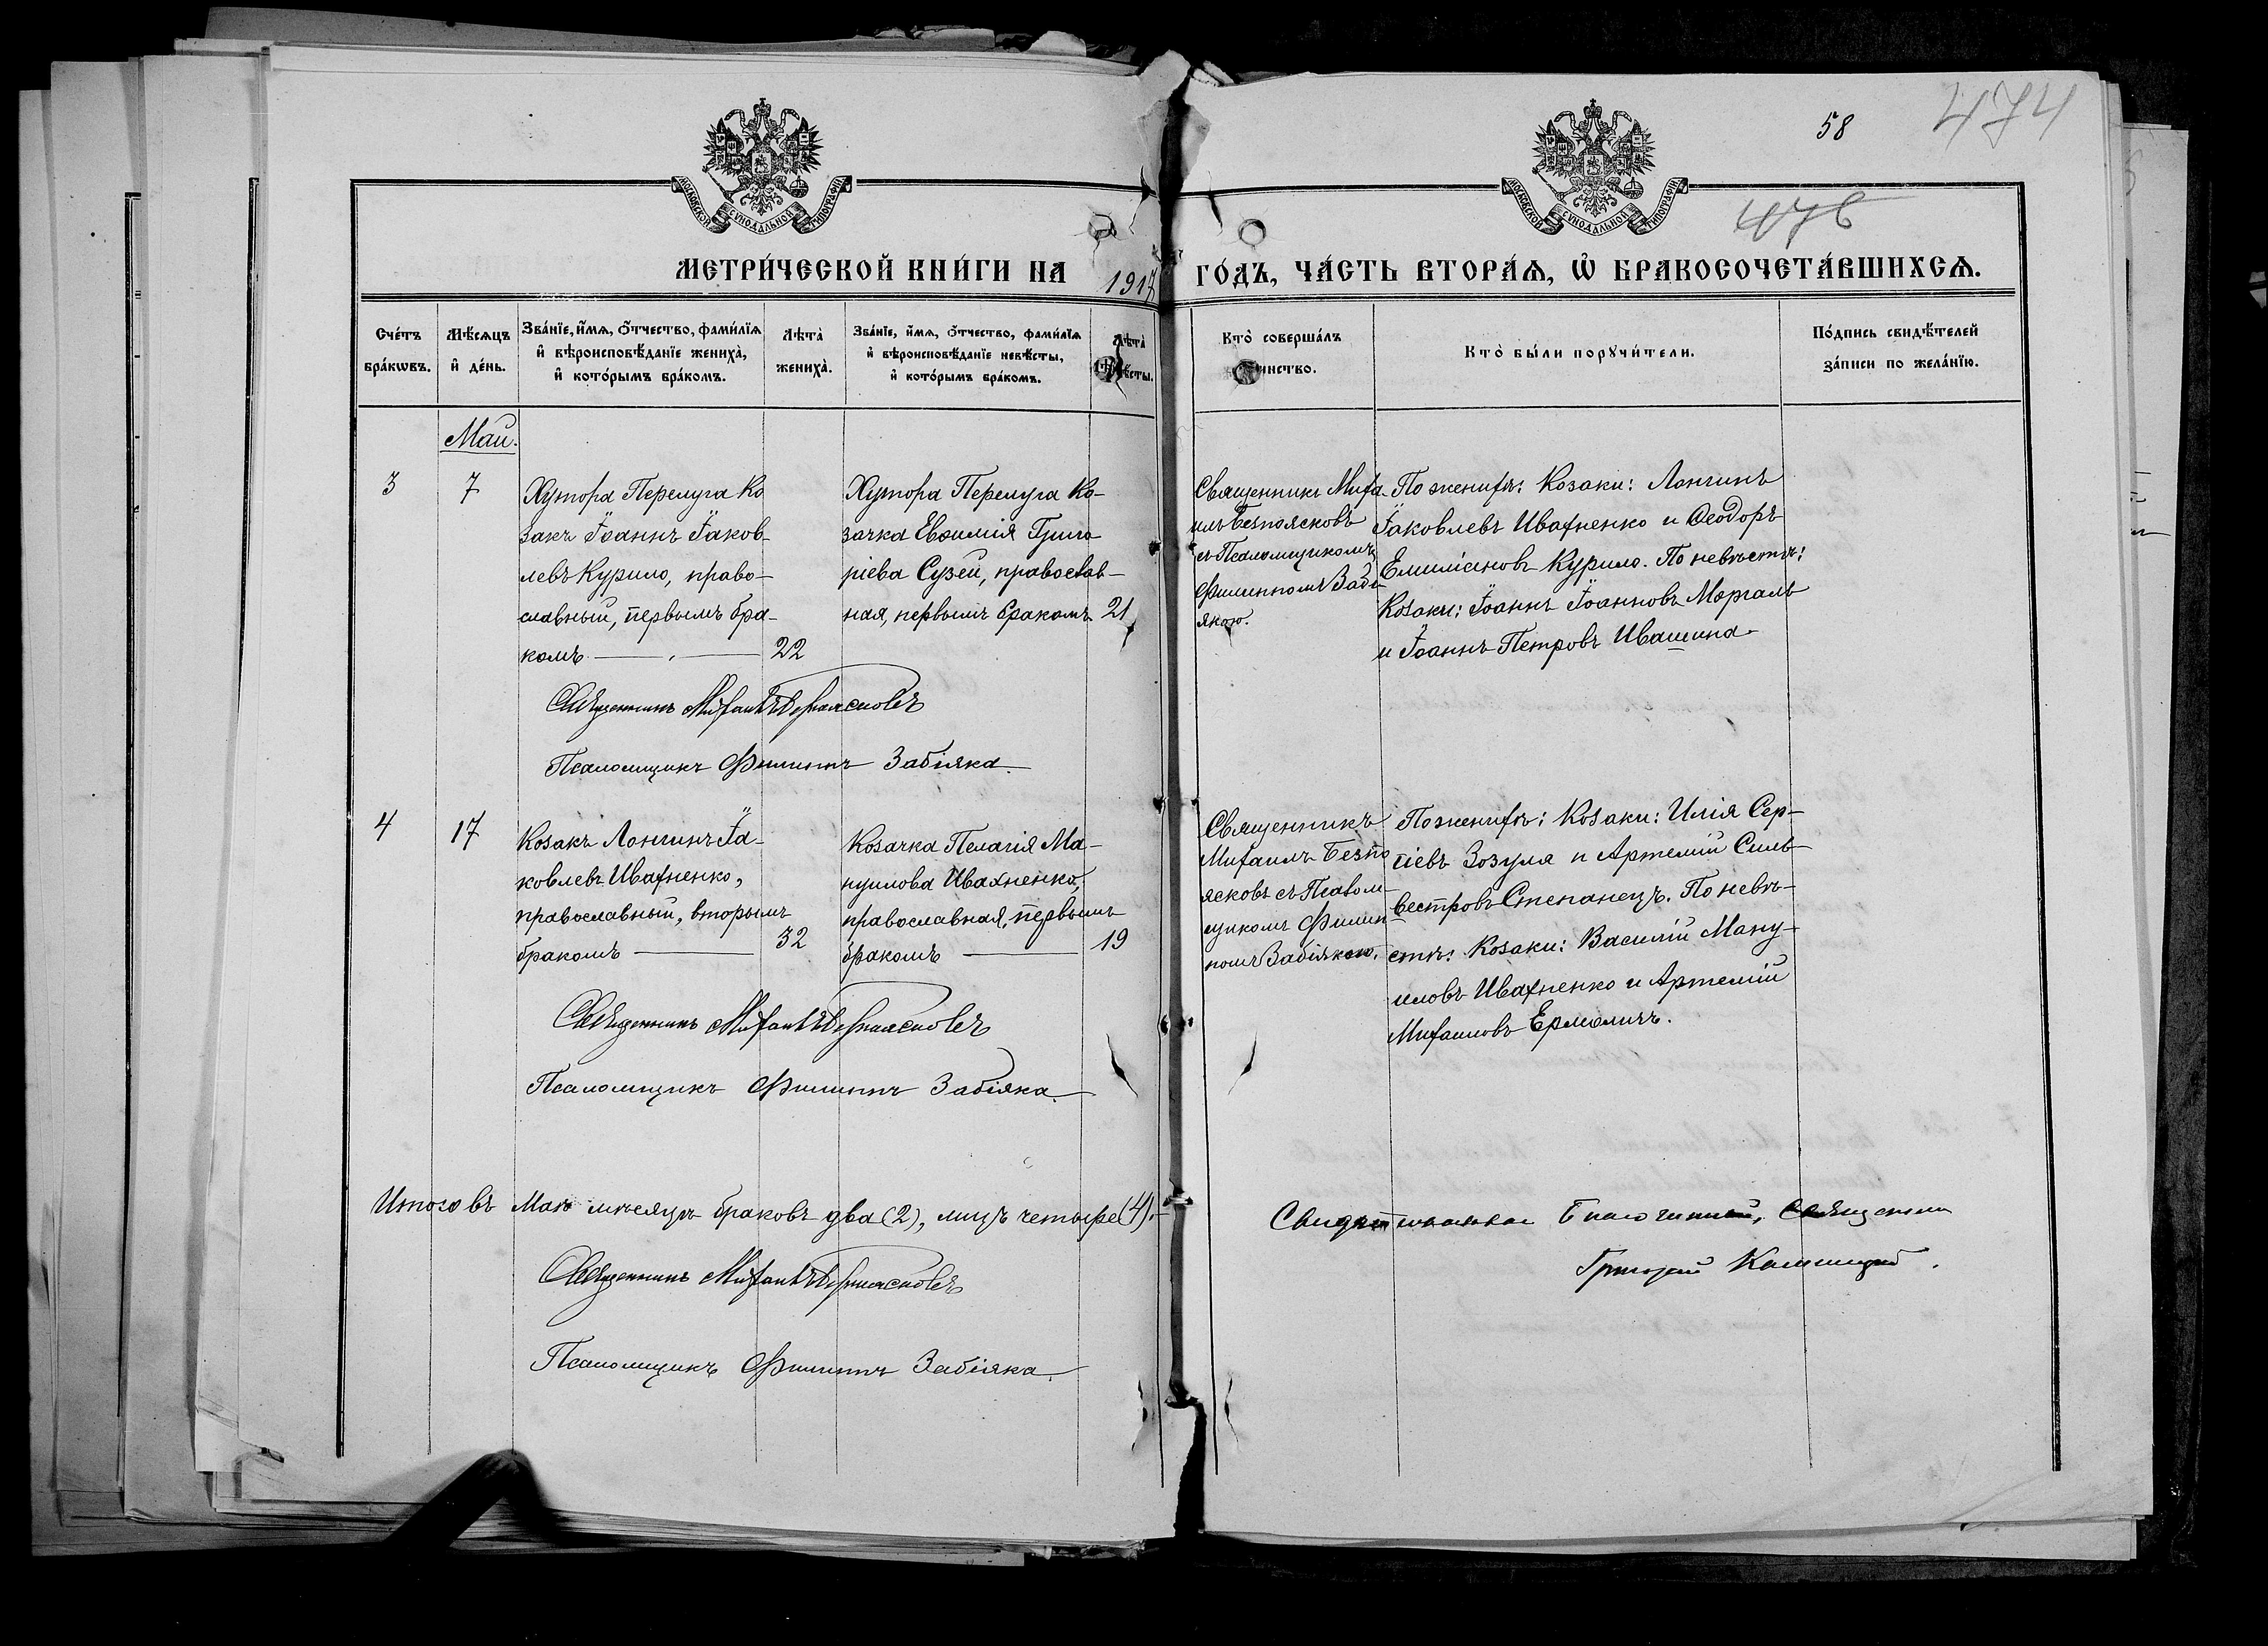 58
474
476
МОСКОВСКОЙ СѴНОДАЛЬНОЙ ТИПОГРАФІИ
МОСКОВСКОЙ СѴНОДАЛЬНОЙ ТИПОГРАФІИ
МЕТРИ́ЧЕСКОЙ КНИ́ГИ НА 1917 ГО́ДЪ, ЧА́СТЬ ВТОРА́Ѧ, Ѡ҆ БРАКОСОЧЕТА́ВШИХСѦ.
Сче́тъ
бра́кѡвъ.
Мѣ́сѧцъ
и҆ де́нь.
Зва́нїе, и҆́мѧ, ѻ҆́тчество, фами́лїѧ
и҆ вѣроисповѣ́данїе жениха̀,
и҆ кото́рымъ бра́комъ.
Лѣта̀
жениха̀.
Зва́нїе, и҆́мѧ, ѻ҆́тчество, фами́лїѧ
и҆ вѣроисповѣ́данїе невѣ́сты,
и҆ кото́рымъ бра́комъ.
Лѣта̀
невѣ́сты.
Кто̀ соверша́лъ
таинство.
Кто̀ бы́ли порꙋчи́тели.
По́дпись свидѣ́телей
за́писи по жела́нїю.
Май.
3
7
Хутора Перелуга Ко
закъ Іоаннъ Іаков-
левъ Курило, право-
славный, первымъ бра-
комъ
22
Хутора Перелуга Ко-
зачка Евѳимія Григо
ріева Сузей, православ-
ная, первымъ бракомъ
21
Священникъ Миха
илъ Безпоясковъ
съ Псаломщикомъ
Филиппомъ Забі
якою.
По женихѣ: Козаки: Лонгинъ
Іаковлевъ Ивахненко и Ѳеодоръ
Емиліановъ Курило. По невѣстѣ:
Козаки: Іоаннъ Іоанновъ Моргаль
и Іоаннъ Петровъ Ивашина
Священникъ Михаилъ Безпоясковъ
Псаломщикъ Филиппъ Забіяка.
4
17
Козакъ Лонгинъ Іа-
ковлевъ Ивахненко,
православный, вторымъ
бракомъ
32
Козачка Пелагія Ма-
нуилова Ивахненко,
православная, первымъ
бракомъ
19
Священникъ
Михаилъ Безпо
ясковъ съ Псалом-
щикомъ Филип
помъ Забіякою.
По женихѣ: Козаки: Илія Сер-
гіевъ Зозуля и Артемій Силь-
вестровъ Степанецъ. По невѣ-
стѣ: Козаки: Василій Ману-
иловъ Ивахненко и Артемій
Михаиловъ Ермоличъ.
Священникъ Михаилъ Безпоясковъ
Псаломщикъ Филиппъ Забіяка.
Итого въ Маѣ мѣсяцѣ браковъ два (2), лицъ четыре (4).
Священникъ Михаилъ Безпоясковъ
Псаломщикъ Филиппъ Забіяка.
Благочинный, Священникъ
Григорій